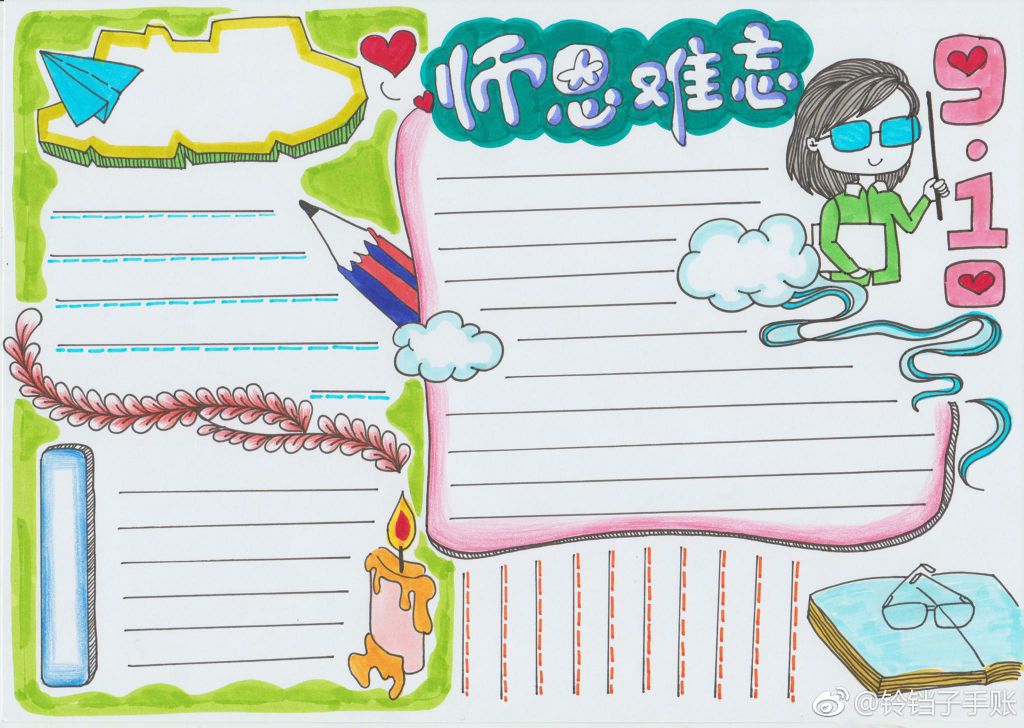 师恩难忘
9.10
@铃铛子手账